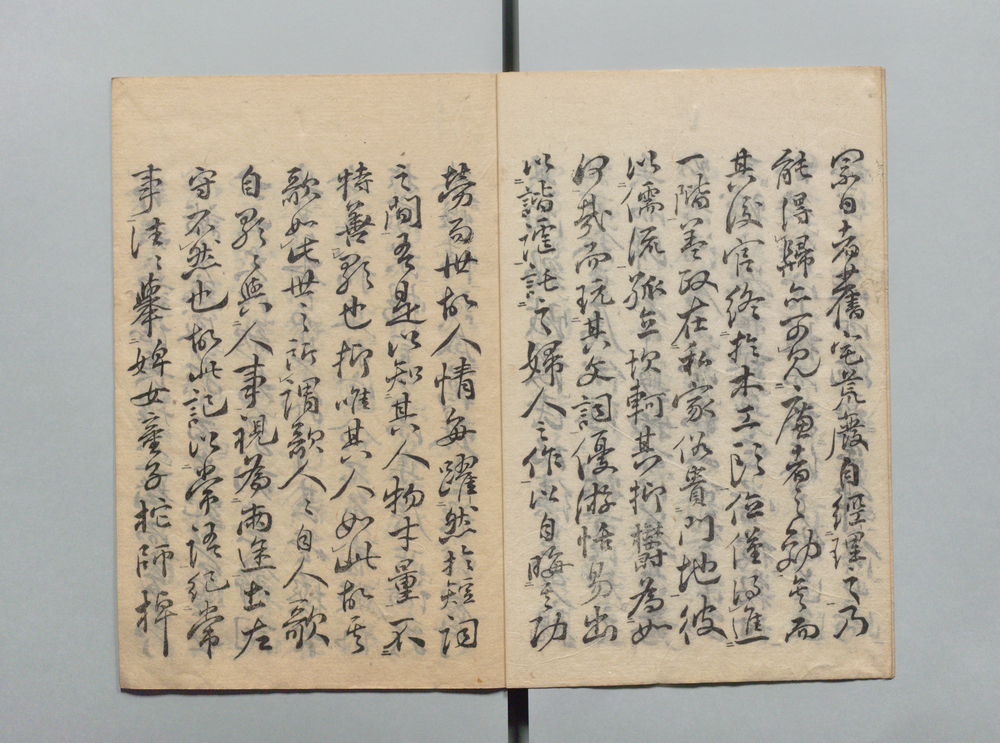 宗日者蕃宅荒廢自經理之乃
能得歸亦可見廉者之効矣而
其後官終於木工頭位僅得進
一階蓋政在私家俗貴門地彼
以儒流孤立坎軻其抑鬱為如
何哉而玩其文詞優游恬易出
以諧謔託之婦人之作以自晦其功
勞而世故人情每躍然於短詞
之間吾是以知其人物才量不
特善歌也抑唯其人如此故其
歌如此世之所謂歌人之自人歌
自歌之與人事視為兩途出左
守不然也故此記以常語紀常
事往々舉婢女童子柁師棹